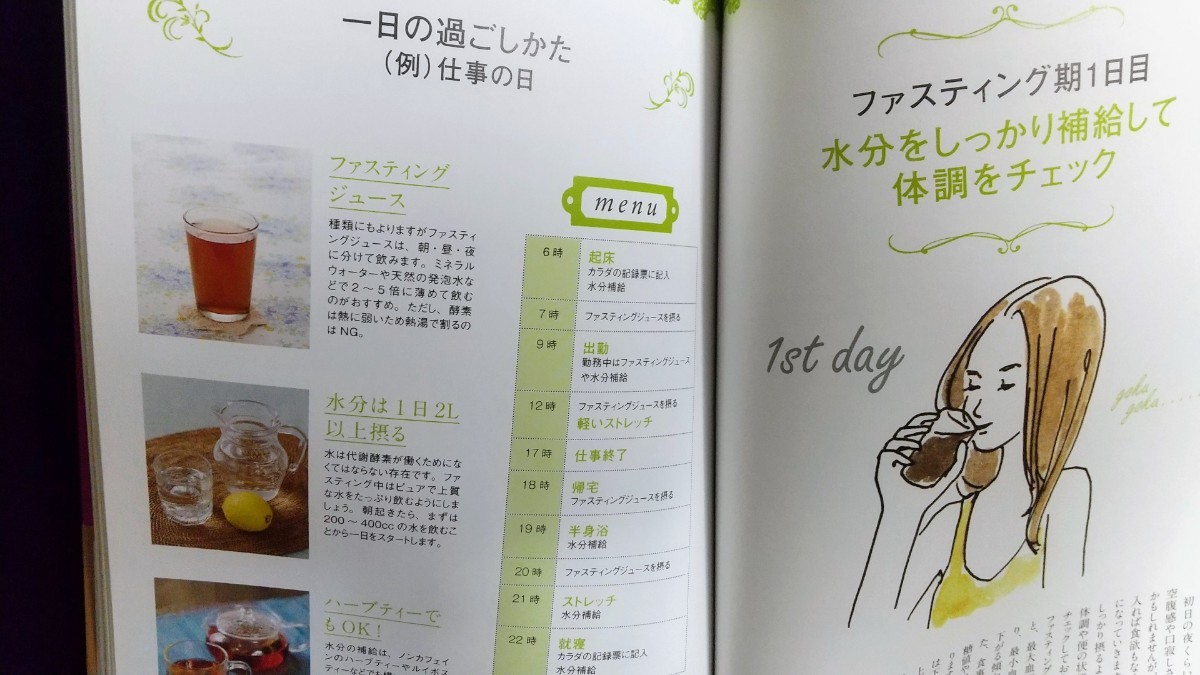 一日の過ごしかた
（例）仕事の日
ファスティング
ジュース
種類にもよりますがファスティ
ングジュースは、朝・昼・夜
に分けて飲みます。ミネラル
ウォーターや天然の発泡水な
どで２～５倍に薄めて飲む
のがおすすめ。ただし、酵素
は熱に弱いため熱湯で割るの
はNG。
水分は１日2L
以上摂る
水は代謝酵素が働くためにな
くてはならない存在です。ファ
スティング中はピュアで上質
な水をたっぷり飲むようにしま
しょう。朝起きたら、まずは
200～400ccの水を飲むこ
とから一日をスタートします。
ハーブティーで
もOK！
水分の補給は、ノンカフェイ
ンのハーブティーやルイボス
ティーなどでも
menu
6時 起床
カラダの記録票に記入
水分補給
7時 ファスティングジュースを摂る
9時 出勤
勤務中はファスティングジュース
や水分補給
12時 ファスティングジュースを摂る
軽いストレッチ
17時 仕事終了
18時 帰宅
ファスティングジュースを摂る
19時 半身浴
水分補給
20時 ファスティングジュースを摂る
21時 ストレッチ
水分補給
22時 就寝
カラダの記録票に記入
水分補給
ファスティング期1日目
水分をしっかり補給して
体調をチェック
1st day
goku
goku.....
初日の夜くらい
空腹感や口寂しさ
かもしれませんが、
入れば食欲もな
になっていきま
しっかり摂るよ
体調や便の状
チェックしてお
ファスティング
と、最大血
り、最小血
下がる傾
た、食事
糖値や